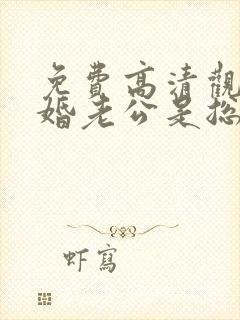 免費高清觀
婚老公是總
虾寫